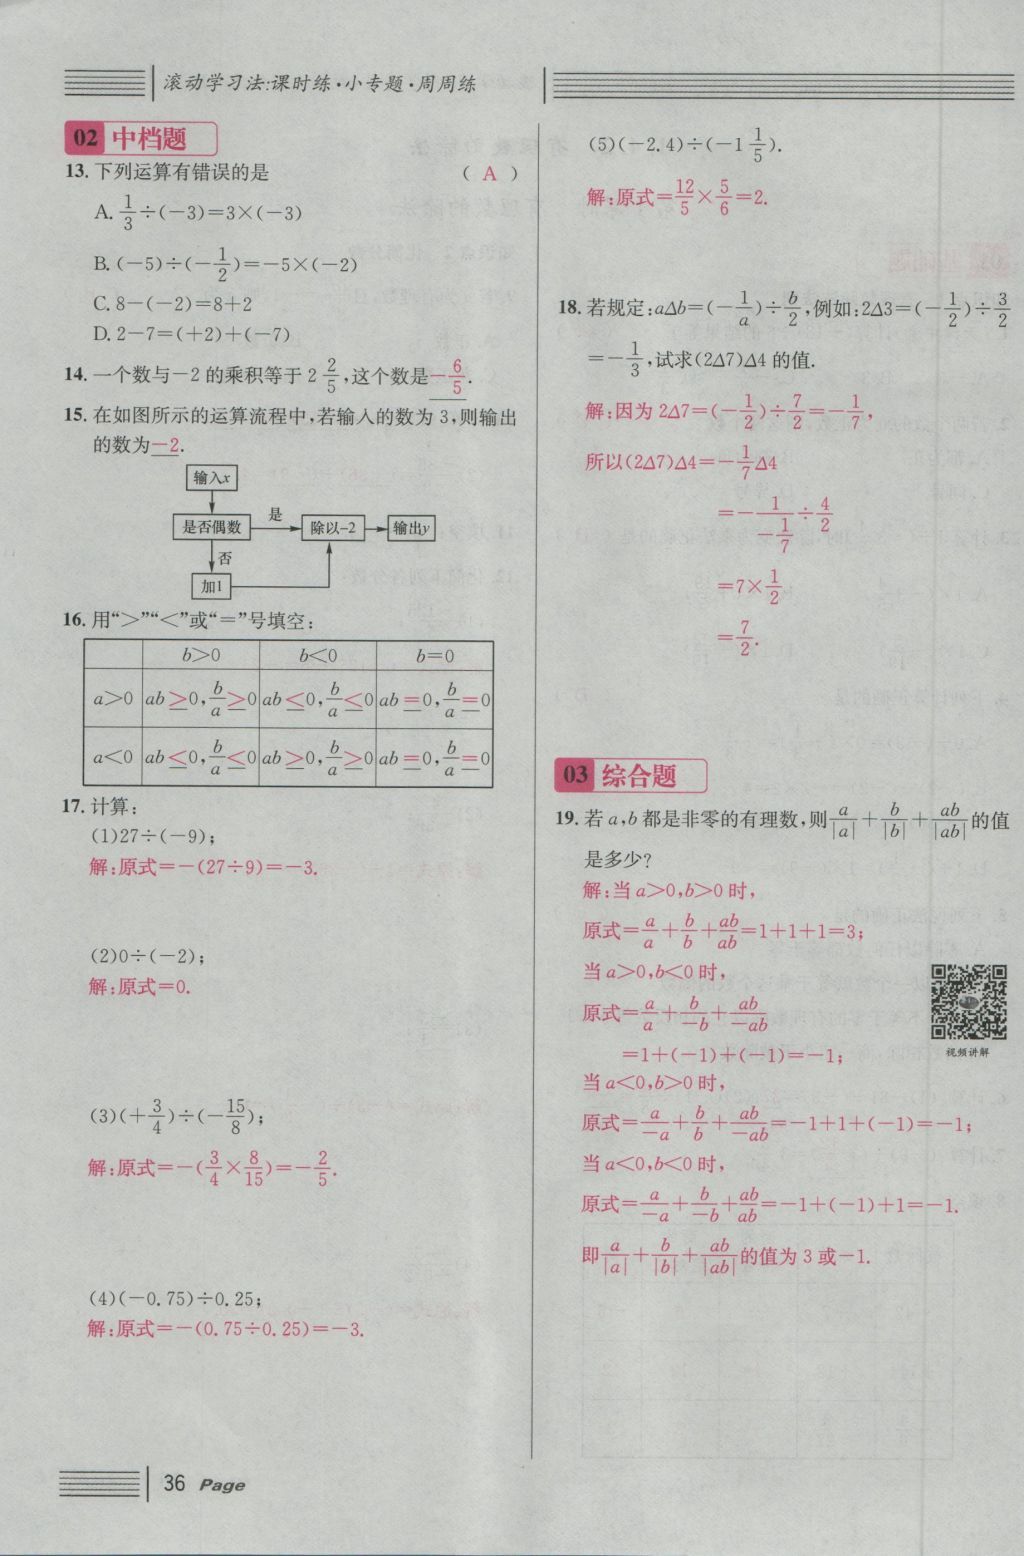 滚动学习法:课时练·小专题·周周练
02 中档题
13. 下列运算有错误的是 ( A )
A. 1/3÷(-3)=3×(-3)
B. (-5)÷(-1/2)=-5×(-2)
C. 8-(-2)=8+2
D. 2-7=(+2)+(-7)
14. 一个数与-2 的乘积等于 2 2/5,这个数是-6/5.
15. 在如图所示的运算流程中,若输入的数为 3,则输出
的数为-2.
输入x
是否偶数 是 除以-2 输出y
否
加1
16. 用“>”“<”或“=”号填空:
b>0 b<0 b=0
a>0 ab>0, b/a>0 ab<0, b/a<0 ab=0, b/a=0
a<0 ab<0, b/a<0 ab>0, b/a>0 ab=0, b/a=0
17. 计算:
(1)27÷(-9);
解:原式=-(27÷9)=-3.
(2)0÷(-2);
解:原式=0.
(3)(+3/4)÷(-15/8);
解:原式=-(3/4×8/15)=-2/5.
(4)(-0.75)÷0.25;
解:原式=-(0.75÷0.25)=-3.
(5)(-2.4)÷(-1 1/5).
解:原式=12/5×5/6=2.
18. 若规定:aΔb=(-1/a)÷b/2,例如:2Δ3=(-1/2)÷3/2
=-1/3,试求(2Δ7)Δ4 的值.
解:因为 2Δ7=(-1/2)÷7/2=-1/7,
所以(2Δ7)Δ4=-1/7Δ4
=-1/(-1/7)÷4/2
=7×1/2
=7/2.
03 综合题
19. 若 a,b 都是非零的有理数,则a/|a|+b/|b|+ab/|ab|的值
是多少?
解:当 a>0,b>0 时,
原式=a/a+b/b+ab/ab=1+1+1=3;
当 a>0,b<0 时,
原式=a/a+b/-b+ab/-ab
=1+(-1)+(-1)=-1;
当 a<0,b>0 时,
原式=a/-a+b/b+ab/-ab=-1+1+(-1)=-1;
当 a<0,b<0 时,
原式=a/-a+b/-b+ab/ab=-1+(-1)+1=-1.
即a/|a|+b/|b|+ab/|ab|的值为 3 或-1.
视频讲解
36 Page